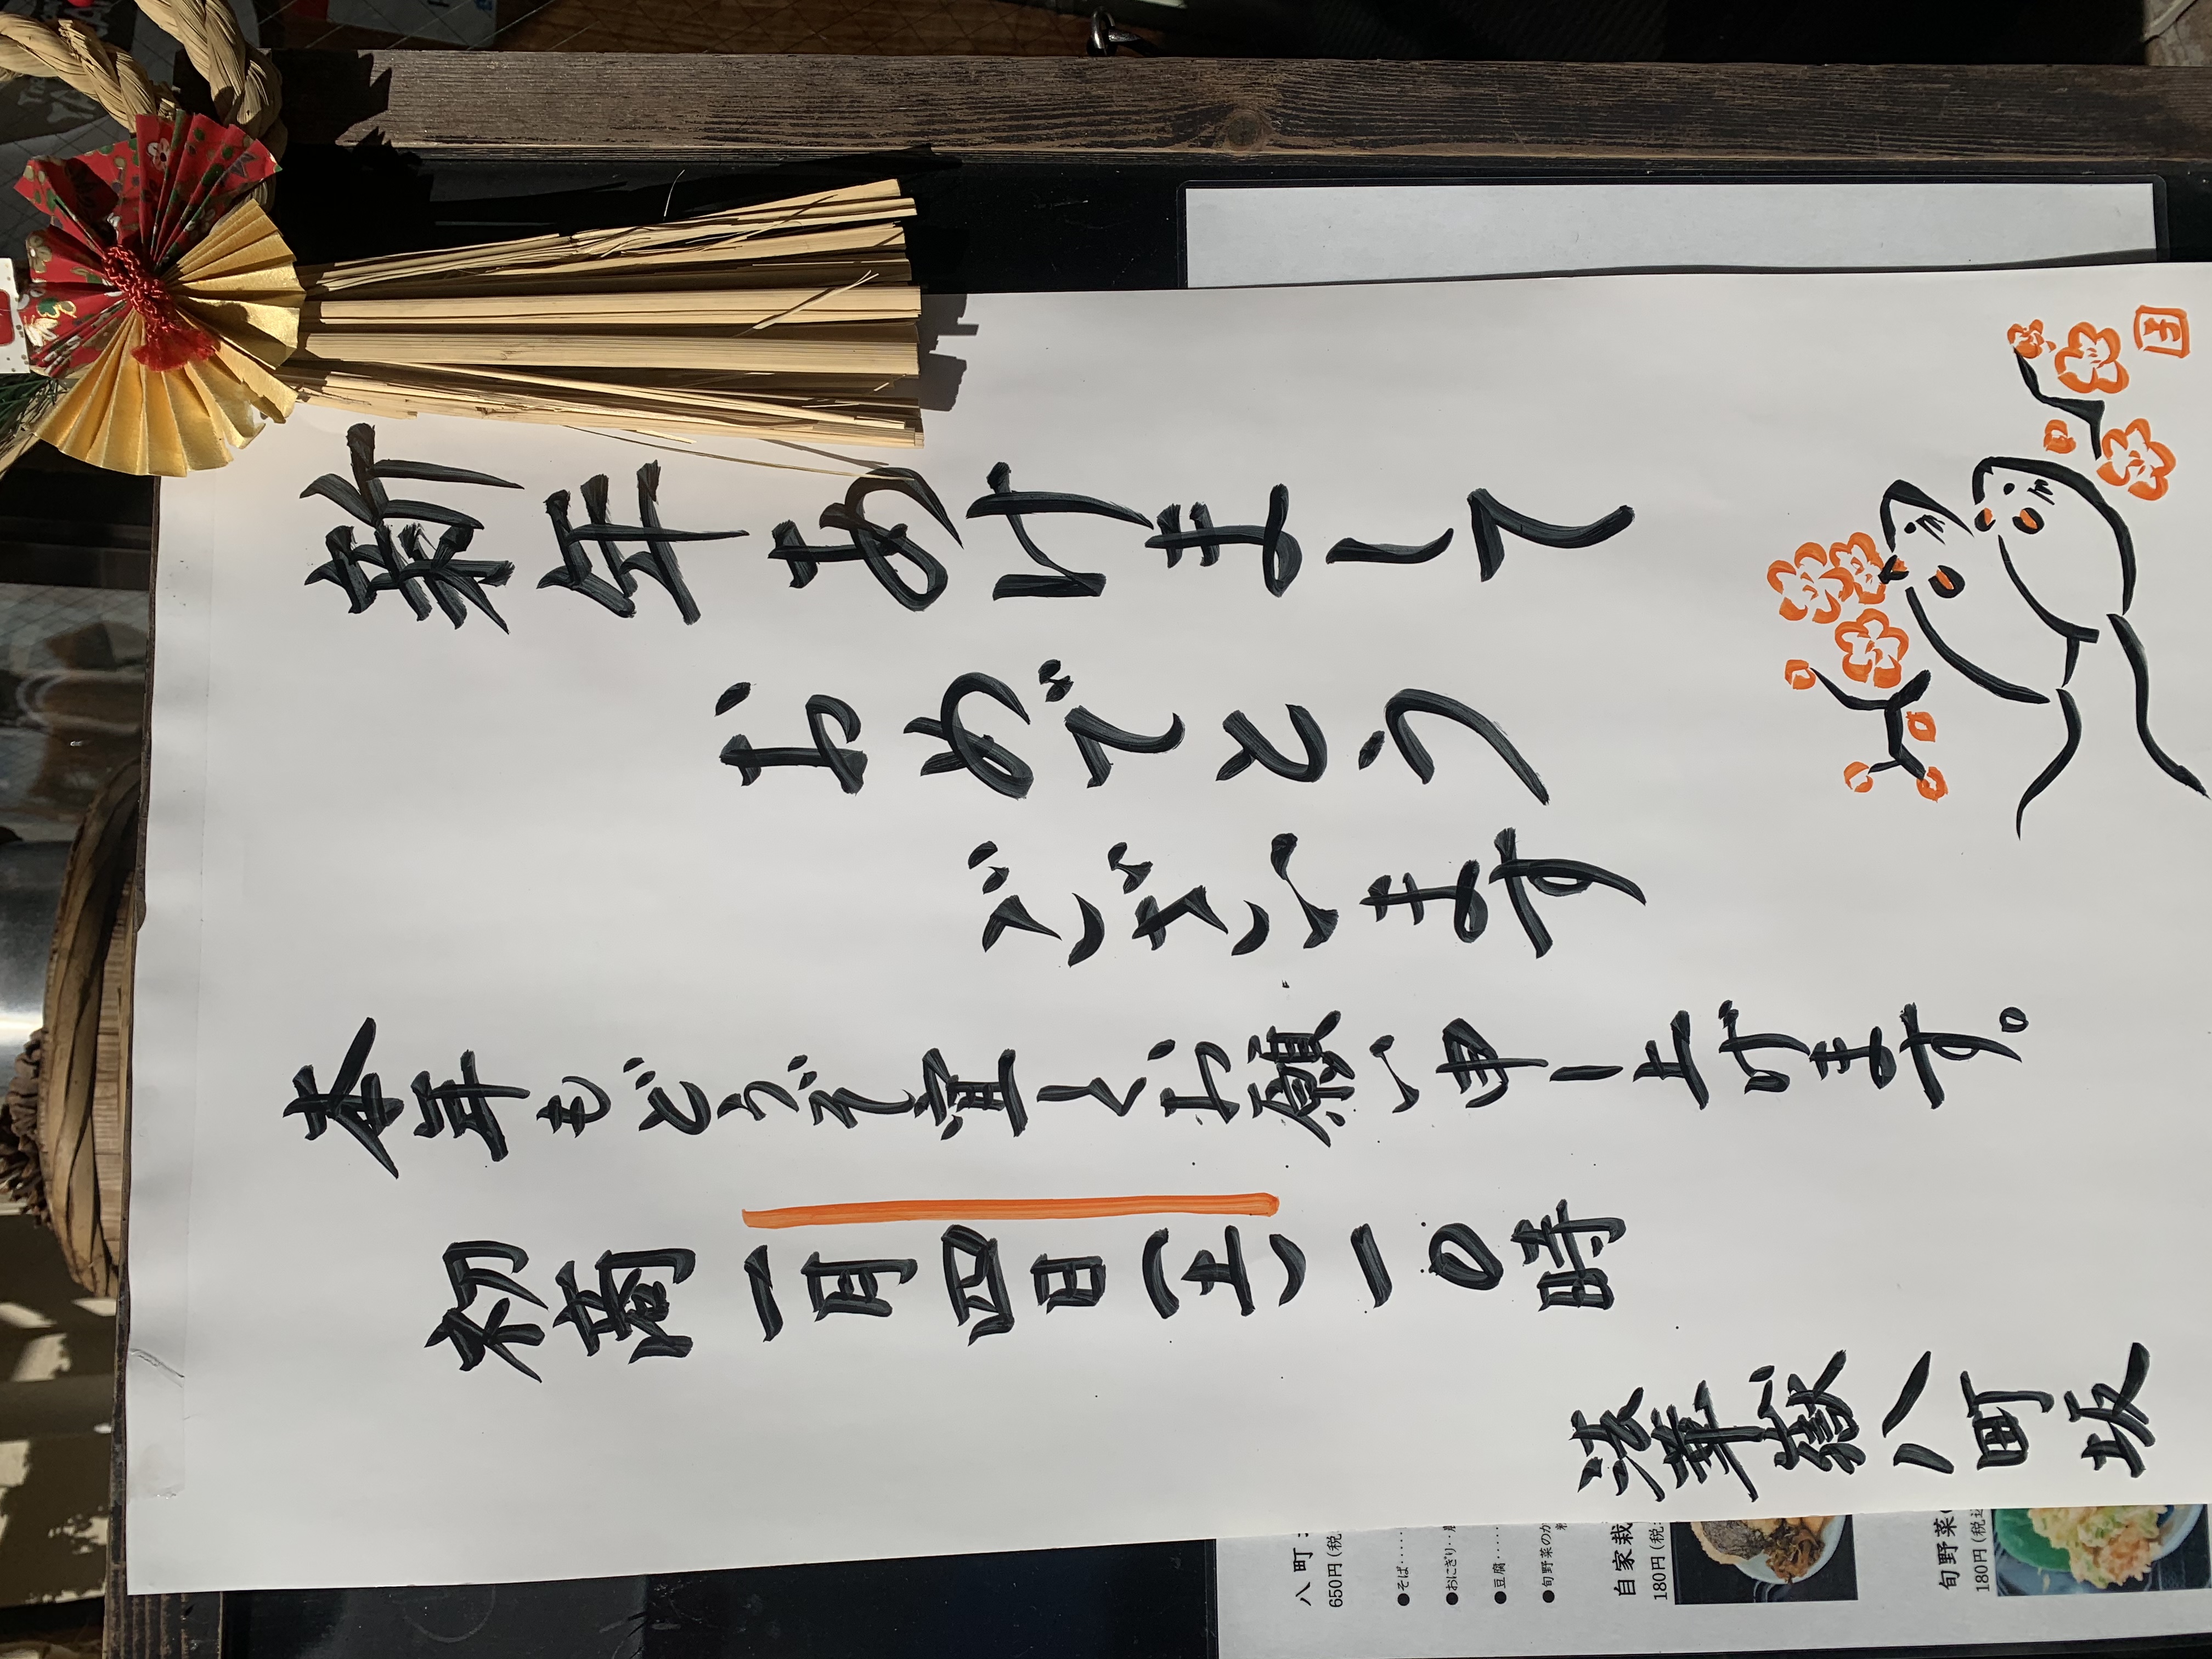 新年あけまして
おめでとう
ございます
本年もどうぞ宜しくお願い申し上げます。
初商一月四日(土)一〇時
法華嶽八町坂
八町
650円(税
●そば‥‥
●おにぎり‥
●豆腐‥‥
●旬野菜のか
自家栽
180円(税
旬野菜
180円(税込